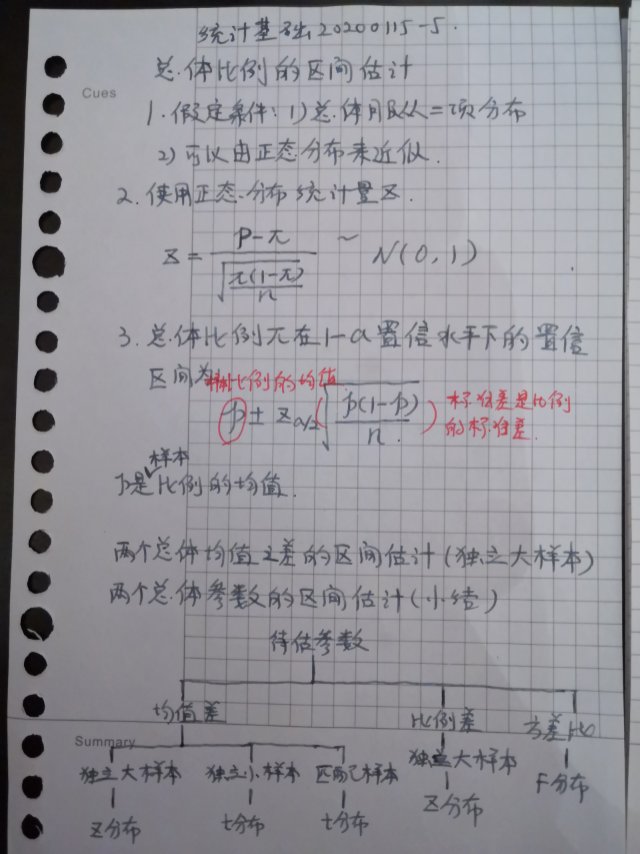 统计基础20200115-5.
总体比例的区间估计
Cues
1. 假定条件: 1) 总体服从二项分布
2) 可以由正态分布来近似.
2. 使用正态分布统计量Z.
Z = (P-π) / √(π(1-π)/n) ~ N(0,1)
3. 总体比例π在1-α置信水平下的置信
区间为
样本比例的均值
p ± Zα/2 (√(p(1-p)/n)) 标准差是比例
的标准差.
样本
p是比例的均值.
两个总体均值之差的区间估计(独立大样本)
两个总体参数的区间估计(小结)
待估参数
均值差 比例差 方差比
Summary
独立大样本 独立小样本 匹配样本 独立大样本 F分布
Z分布 t分布 t分布 Z分布